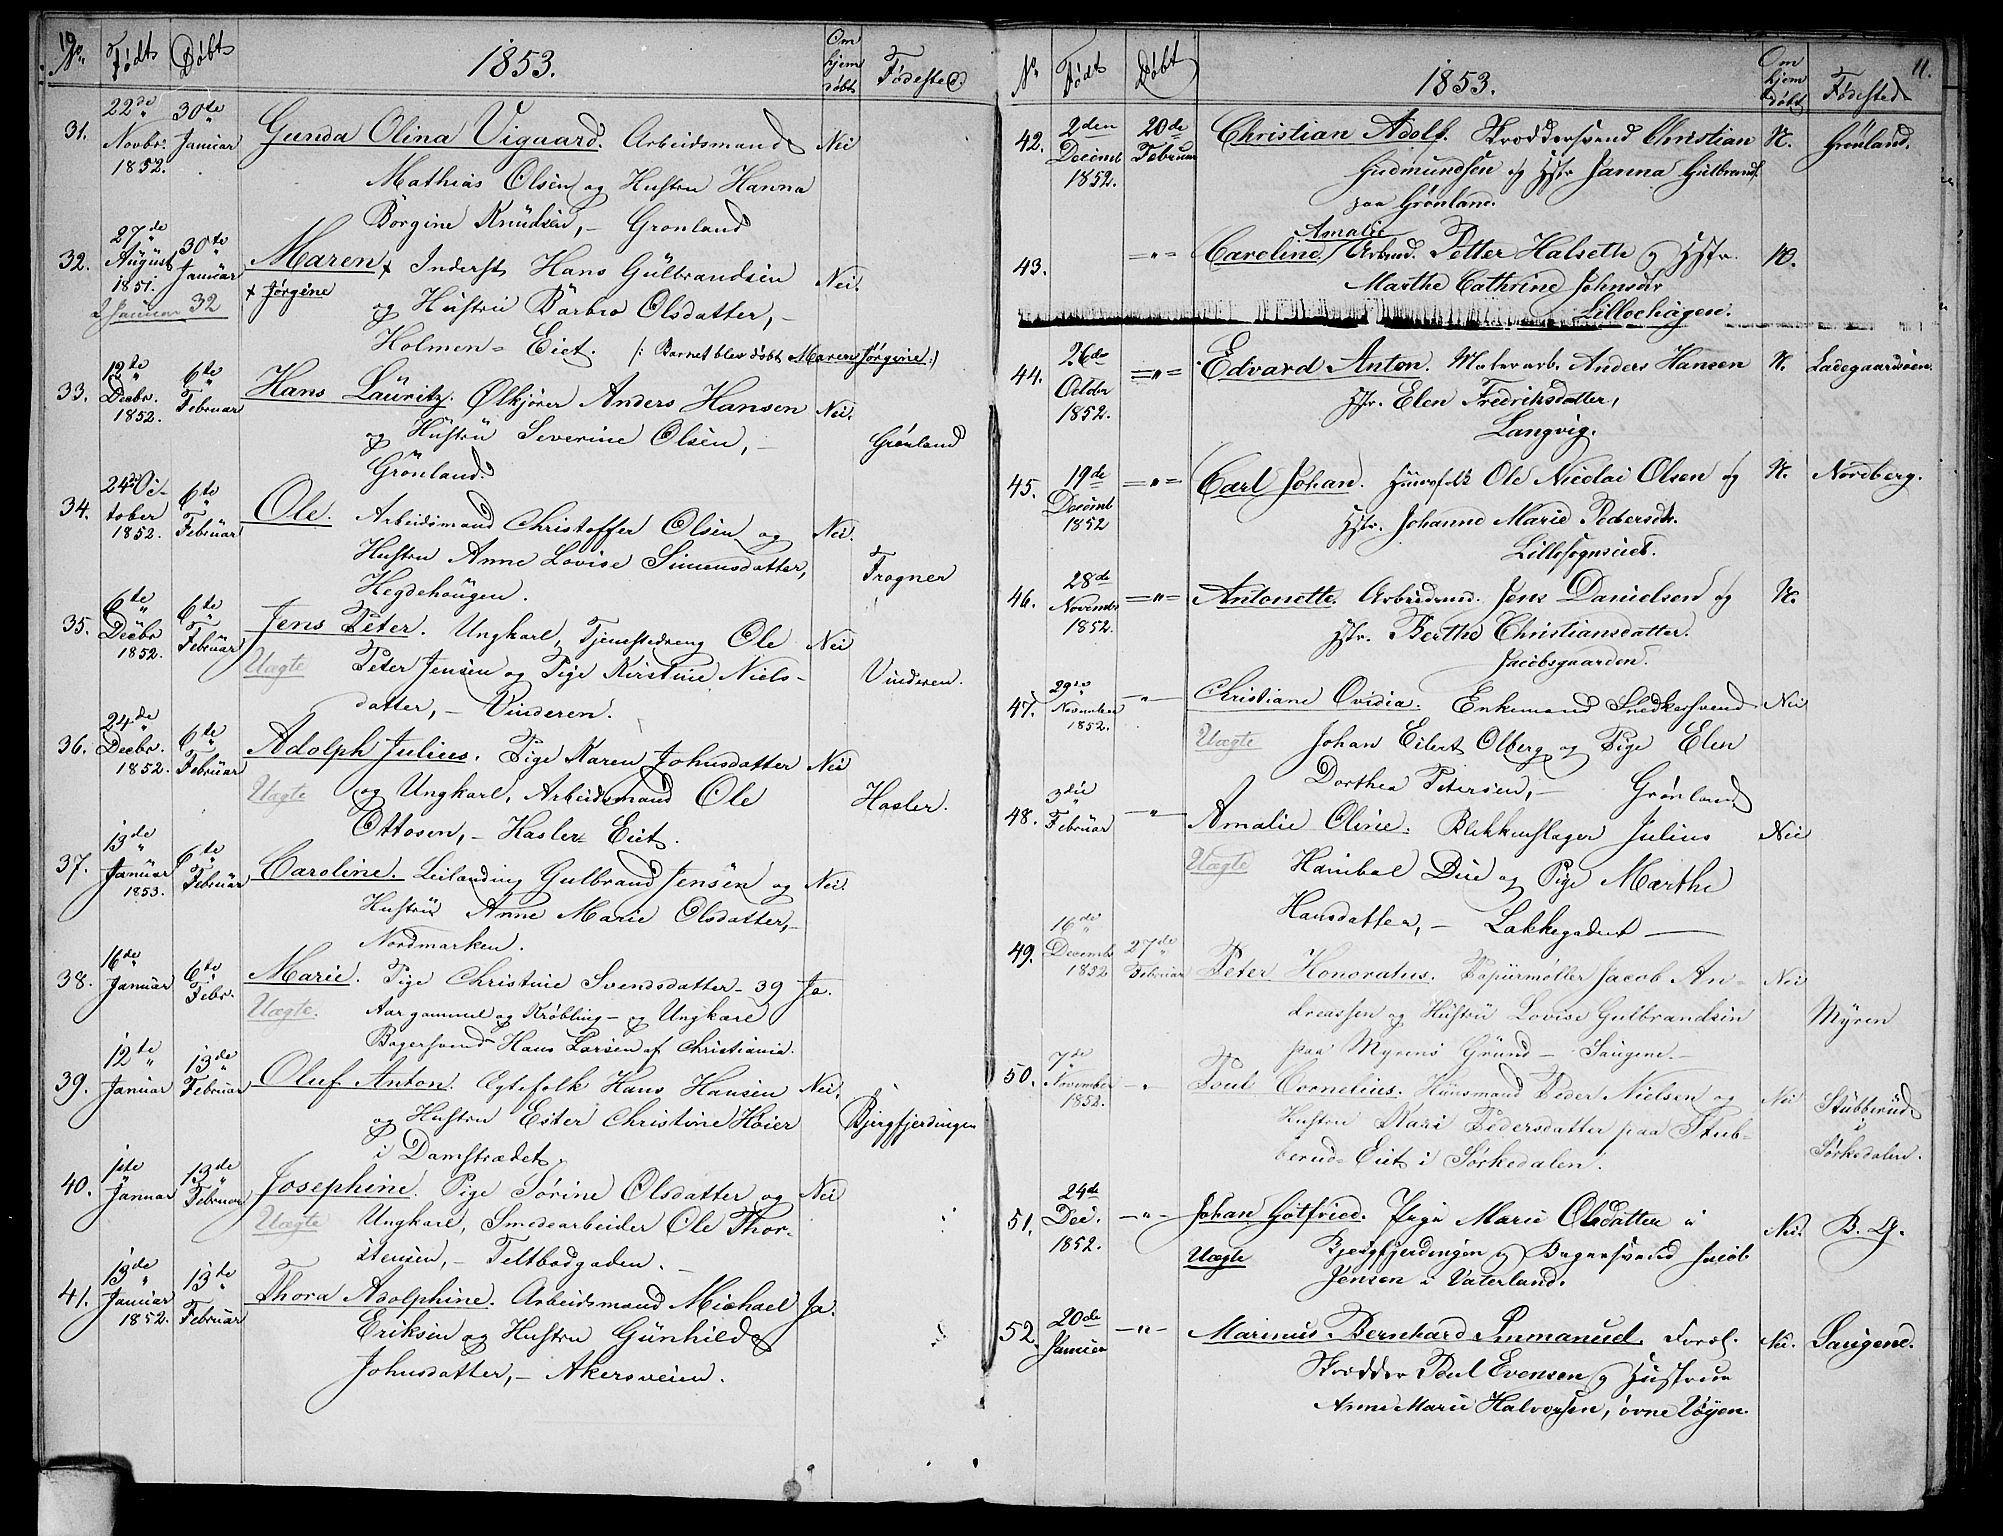 10
No. Födt Döbt 1853. Om hjem döbt Födested.
31. 22de Novbr. 1852. 30te Januar Gunda Olina Vigaard. Arbeidsmand Nei
Mathias Olsen og Hustru Hanna
Borgine Knudsen, - Grønland
32. 27de August 1851. 30te Januar Maren x Inderst Hans Gulbrandsen Nei.
2 Januar 32 x Jørgine og Hustru Barbro Olsdatter, -
Holmen = Eiet. /: Barnet blev döbt Maren Jørgine :/
33. 12te Decbr. 1852. 6te Februar Hans Lauritz. Ølkjører Anders Hansen Nei.
og Hustru Severine Olsen, - Grønland
Grønland.
34. 24de October 1852. 6te Februar Ole. Arbeidsmand Christoffer Olsen og Nei.
Hustru Anne Lovise Simensdatter, Frogner
Hegdehaugen.
35. 6te Decbr. 1852. 6te Februar Jens Peter. Ungkarl, Tjenestedreng Ole Nei
Uægte Peter Jensen og Pige Kirstine Niels- Vinderen.
datter, - Vinderen.
36. 24de Decbr. 1852. 6te Februar Adolph Julius. Pige Karen Johnsdatter Nei
Uægte og Ungkarl, Arbeidsmand Ole Hasler.
Ottosen, - Hasler = Eiet.
37. 13de Januar 1853. 6te Februar Caroline. Leilænding Gulbrand Jensen og Nei.
Hustru Anne Marie Olsdatter, -
Nordmarken.
38. 16de Januar 6te Febr. Marie. Pige Christine Svendsdatter - 39 Ja.
Uægte. Aar gammel og Krøbling - og Ungkarl
Bagersvend Hans Larsen af Christiania.
39. 12te Januar 13de Februar Oluf Anton. Egtefolk Hans Hansen Nei.
og Hustru Ester Christine Høier Bjergfjerdingen
i Damstrædet.
40. 1ste Januar 13de Februar Josephine. Pige Sørine Olsdatter og Nei
Uægte Ungkarl, Smedearbeider Ole Thor-
stensen, - Teltbodgaden. -
41. 13de Januar 1852. 13de Februar Thora Adolphine. Arbeidsmand Michael Ja.
Eriksen og Hustru Gunhild
Johnsdatter, - Akersveien.
11.
No Födt Döbt 1853. Om hjem döbt Födested
42. 2den Decemb 1852. 20de Februar Christian Adolf. Skræddersvend Christian N. Grønland.
Gudmundsen og Hstr Janna Gulbrands.
paa Grønland.
43. ="= Caroline Amalie Arbmd. Petter Halseth og Hstr. N.
Marthe Cathrine Johnsdr
Lillochagen.
44. 26de Octobr 1852. =="= Edvard Anton. Malerarb. Anders Hansen N. Ladegaardsøen.
Hstr. Elen Fredriksdatter,
Langvig.
45. 19de Decemb 1852 =="= Carl Johan. Huusfolk Ole Nicolai Olsen og N. Nordberg.
Hstr. Johanne Marie Pedersdtr.
46. 28de Novembr 1852. =="= Antonette. Arbeidsmd. Jens Danielsen og N.
Hstr. Berthe Christiansdatter.
Jacobsgaarden.
47. 29de November 1852. -"- Christiane Ovidia. Enkemand Snedkersvend Nei
Uægte Johan Eilert Olberg og Pige Elen
Dorthea Petersen, - Grønland
48. 3die Februar -"- Amalie Oline. Blikkenslager Julius Nei
Uægte Hanibal Due og Pige Marthe
Hansdatter, - Lakkegaden -
49. 16de Decemb 1852 27de Februar Peter Honoratus. Papiirmøller Jacob An- Nei
dreassen og Hustru Lovise Gulbrandsen Myren
paa Myrens Grund - Saugene. -
50. 7de November 1852. -"- Poul Cornelius. Huusmand Peder Nielsen og Nei Stubberud
Hustru Kari Pedersdatter paa Stub- i
berud = Eiet i Sørkedalen. Sørkedalen.
51. 24de Dec. 1852. -"- Johan Gotfried. Pige Marie Olsdatter i Nei. B. G.
Uægte Bjergfjerdingen og Bagersvend Jacob
Jensen i Vaterland.
52. 20de Januar -"- Marinus Bernhard Immanuel. Foræl. Nei. Saugene.
Skrædder Poul Evensen og Hustrue
Anne Marie Halvorsen, øvre Vøyen.